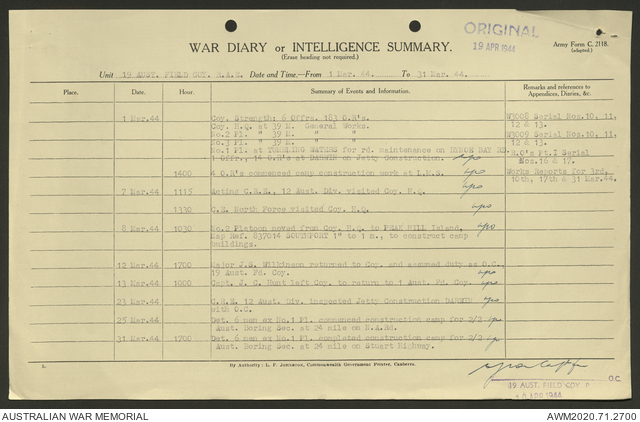 ORIGINAL
19 APR 1944
WAR DIARY or INTELLIGENCE SUMMARY.
(Erase heading not required.)
Army Form C. 2118.
(adapted.)
Unit 19 AUST. FIELD COY. R.A.E. Date and Time.—From 1 Mar. 44. To 31 Mar. 44.
Place. Date. Hour. Summary of Events and Information. Remarks and references to Appendices, Diaries, &c.
1 Mar.44 Coy. Strength: 6 Offrs. 183 O.R's. W3008 Serial Nos.10, 11,
Coy. H.Q. at 39 M. General Works. 12 & 13.
No.2 Pl. " 39 M. " " W3009 Serial Nos.10, 11,
No.3 Pl. " 39 M. " " 12 & 13.
No.1 Pl. at TUMBLING WATERS for rd. maintenance on BYNOE BAY RD R.O's Pt.I Serial
1 Offr., 14 O.R's at DARWIN on Jetty Construction. Nos.16 & 17.
1400 4 O.R's commenced camp construction work at Works Reports for 3rd,
10th, 17th & 31 Mar.44.
7 Mar.44 1115 Acting C.R.E., 12 Aust. Div. visited Coy. H.Q.
1330 C.E. North Force visited Coy. H.Q.
8 Mar.44 1030 No.2 Platoon moved from Coy. H.Q. to PEAK HILL Island,
Map Ref. 837014 SOUTHPORT 1" to 1 m., to construct camp
buildings.
12 Mar.44 1700 Major J.S. Wilkinson returned to Coy. and assumed duty as O.C.,
19 Aust. Fd. Coy.
13 Mar.44 1000 Capt. J.C. Hunt left Coy. to return to 1 Aust. Fd. Coy.
23 Mar.44 C.R.E. 12 Aust. Div. inspected Jetty Construction DARWIN
with O.C.
25 Mar.44 Det. 6 men ex No.1 Pl. commenced construction camp for 2/2
Aust. Boring Sec. at 24 mile on N.A.Rd.
31 Mar.44 1700 Det. 6 men ex No.1 Pl. completed construction camp for 2/2
Aust. Boring Sec. at 24 mile on Stuart Highway.
By Authority: L. F. Johnston, Commonwealth Government Printer, Canberra.
O.C.
19 AUST. FIELD COY
APR 1944
AUSTRALIAN WAR MEMORIAL
AWM2020.71.2700